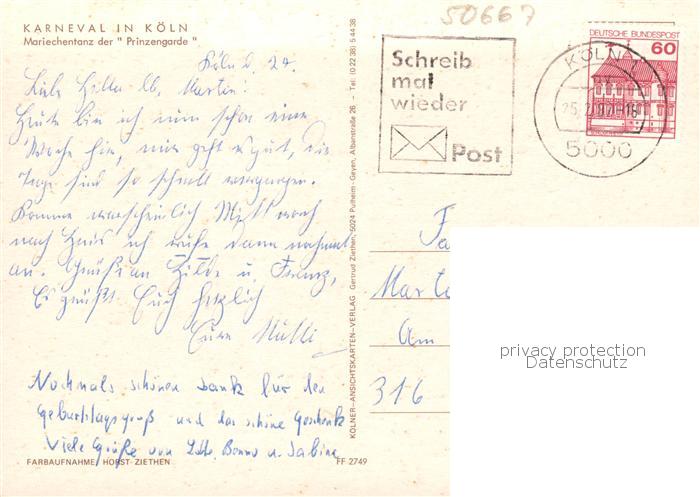 50667
KARNEVAL IN KÖLN
Mariechentanz der " Prinzengarde "
Köln d. 24.
Liebe Hella lb. Marten!
Heute bin ich nun schon eine
Woche hier, mir geht es gut, die
Tage sind so schnell vergangen.
Komme warscheinlich Mittwoch
nach Haus ich rufe dann nochmal
an. Grüßt an Hilde u. Franz,
Es grüßt Euch herzlich
Eure Mutti
Nochmals schönen Dank für den
Geburtstagsgruß und das schöne Geschenk
Viele Grüße von Benno u. Sabine
FARBAUFNAHME: HORST ZIETHEN
FF 2749
KÖLNER-ANSICHTSKARTEN-VERLAG Gertrud Ziethen, 5024 Pulheim - Geyen, Albenstraße 26 - Tel: (0 22 38) 5 44 38
Schreib
mal
wieder
Post
DEUTSCHE BUNDESPOST
60
KÖLN
5000
Fa
Marte
Am
316
privacy protection
Datenschutz